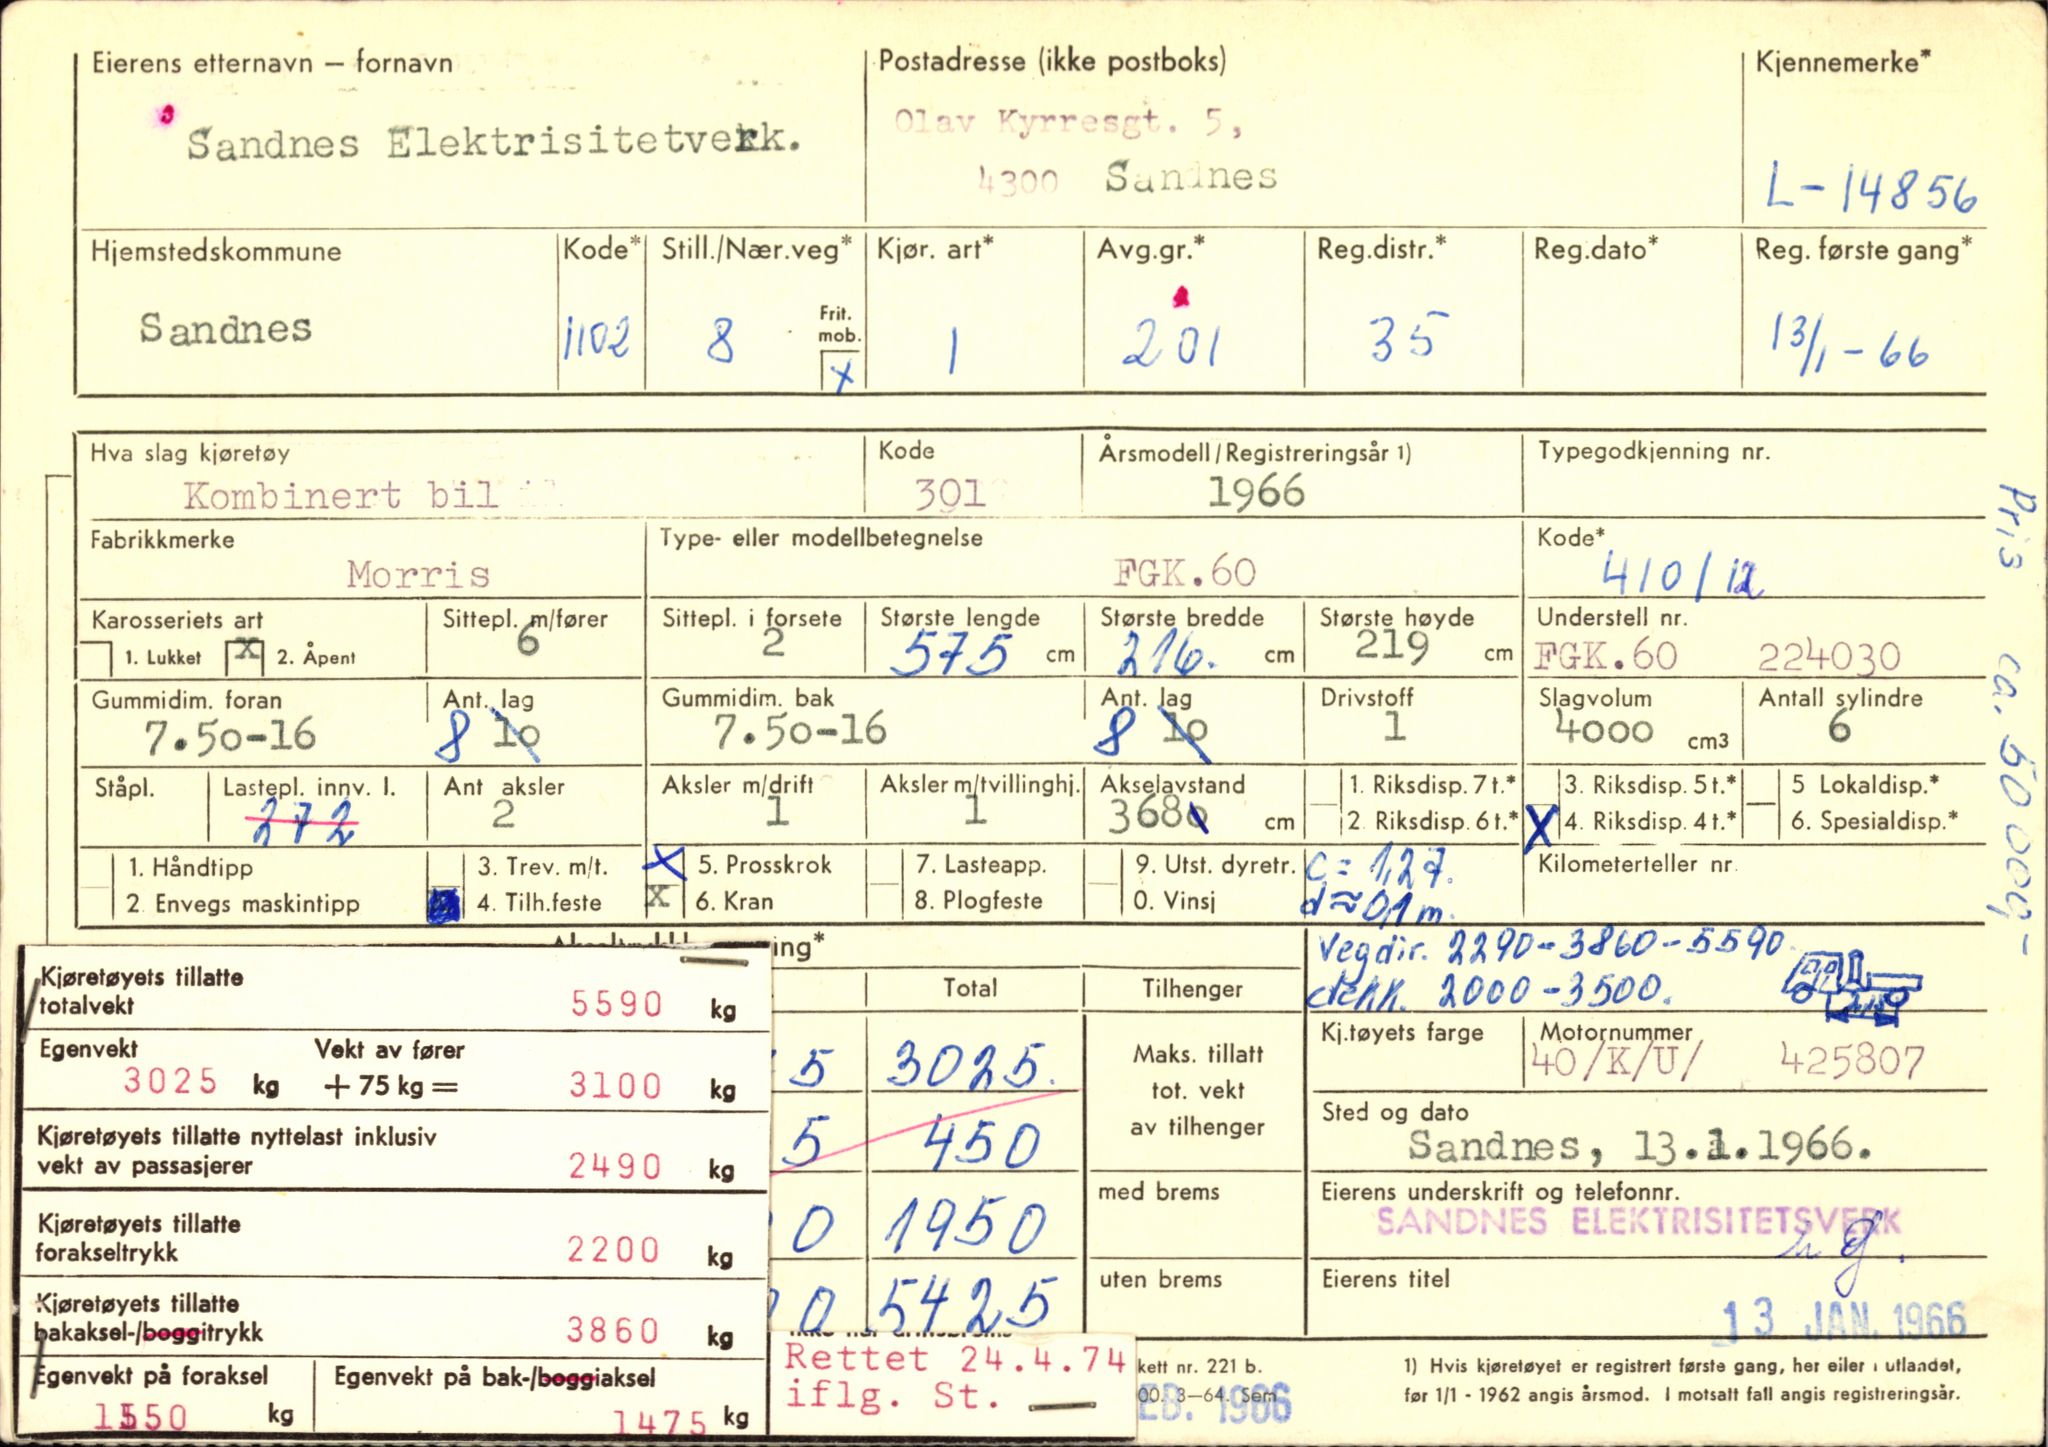 Eierens etternavn — fornavn
Sandnes Elektrisitetverk.
Postadresse (ikke postboks)
Olav Kyrresgt. 5,
4300 Sandnes
Kjennemerke*
L-14856
Hjemstedskommune
Sandnes
Kode*
1102
Still./Nær.veg*
8
Frit. mob.
x
Kjør. art*
1
Avg.gr.*
201
Reg.distr.*
35
Reg.dato*
Reg. første gang*
13/1-66
Hva slag kjøretøy
Kombinert bil
Kode
301
Årsmodell/Registreringsår 1)
1966
Typegodkjenning nr.
Fabrikkmerke
Morris
Type- eller modellbetegnelse
FGK.60
Kode*
410/12
Karosseriets art
1. Lukket x 2. Åpent
Sittepl. m/fører
6
Sittepl. i forsete
2
Største lengde
575 cm
Største bredde
216. cm
Største høyde
219 cm
Understell nr.
FGK.60 224030
Gummidim. foran
7.50-16
Ant. lag
8 10
Gummidim. bak
7.50-16
Ant. lag
8 10
Drivstoff
1
Slagvolum
4000 cm3
Antall sylindre
6
Ståpl.
Lastepl. innv. l.
272
Ant aksler
2
Aksler m/drift
1
Aksler m/tvillinghj.
1
Akselavstand
3680 cm
1. Riksdisp. 7 t.*
2. Riksdisp. 6 t.*
3. Riksdisp. 5 t.*
X 4. Riksdisp. 4 t.*
5 Lokaldisp.*
6. Spesialdisp.*
1. Håndtipp
2. Envegs maskintipp
3. Trev. m/t.
4. Tilh.feste
X 5. Prosskrok
X 6. Kran
7. Lasteapp.
8. Plogfeste
9. Utst. dyretr.
0. Vinsj
c = 1,27.
d ≈ 0,1 m.
Kilometerteller nr.
Pris ca. 50 000,-
ing*
Vegdir. 2290-3860-5590.
dekk. 2000-3500.
Total
Tilhenger
5 3025.
5 450
0 1950
0 5425
Maks. tillatt
tot. vekt
av tilhenger
med brems
uten brems
Kj.tøyets farge
Motornummer
40/K/U/ 425807
Sted og dato
Sandnes, 13.1.1966.
Eierens underskrift og telefonnr.
SANDNES ELEKTRISITETSVERK
Eierens titel
13 JAN. 1966
Kjøretøyets tillatte
totalvekt 5590 kg
Egenvekt Vekt av fører
3025 kg + 75 kg = 3100 kg
Kjøretøyets tillatte nyttelast inklusiv
vekt av passasjerer 2490 kg
Kjøretøyets tillatte
forakseltrykk 2200 kg
Kjøretøyets tillatte
bakaksel-/boggitrykk 3860 kg
Egenvekt på foraksel
1550 kg
Egenvekt på bak-/boggiaksel
1475 kg
Rettet 24.4.74
iflg. St.
kett nr. 221 b.
00. 3—64. Sem
EB. 1966
1) Hvis kjøretøyet er registrert første gang, her eller i utlandet,
før 1/1 - 1962 angis årsmod. I motsatt fall angis registreringsår.